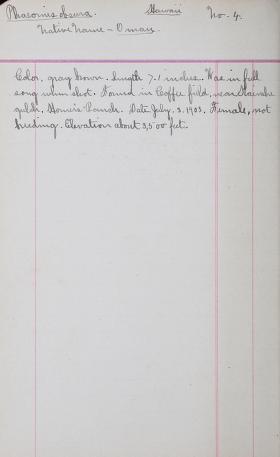 Phaeornis obscura. Hawaii No. 4.
Native Name – Omau.
Color, gray brown. Length 7.1 inches. Was in full
song when shot. Found in Coffee field, near
gulch, Ranch. Date July. 3. 1903. Female, not
breeding. Elevation about 3,500 feet.